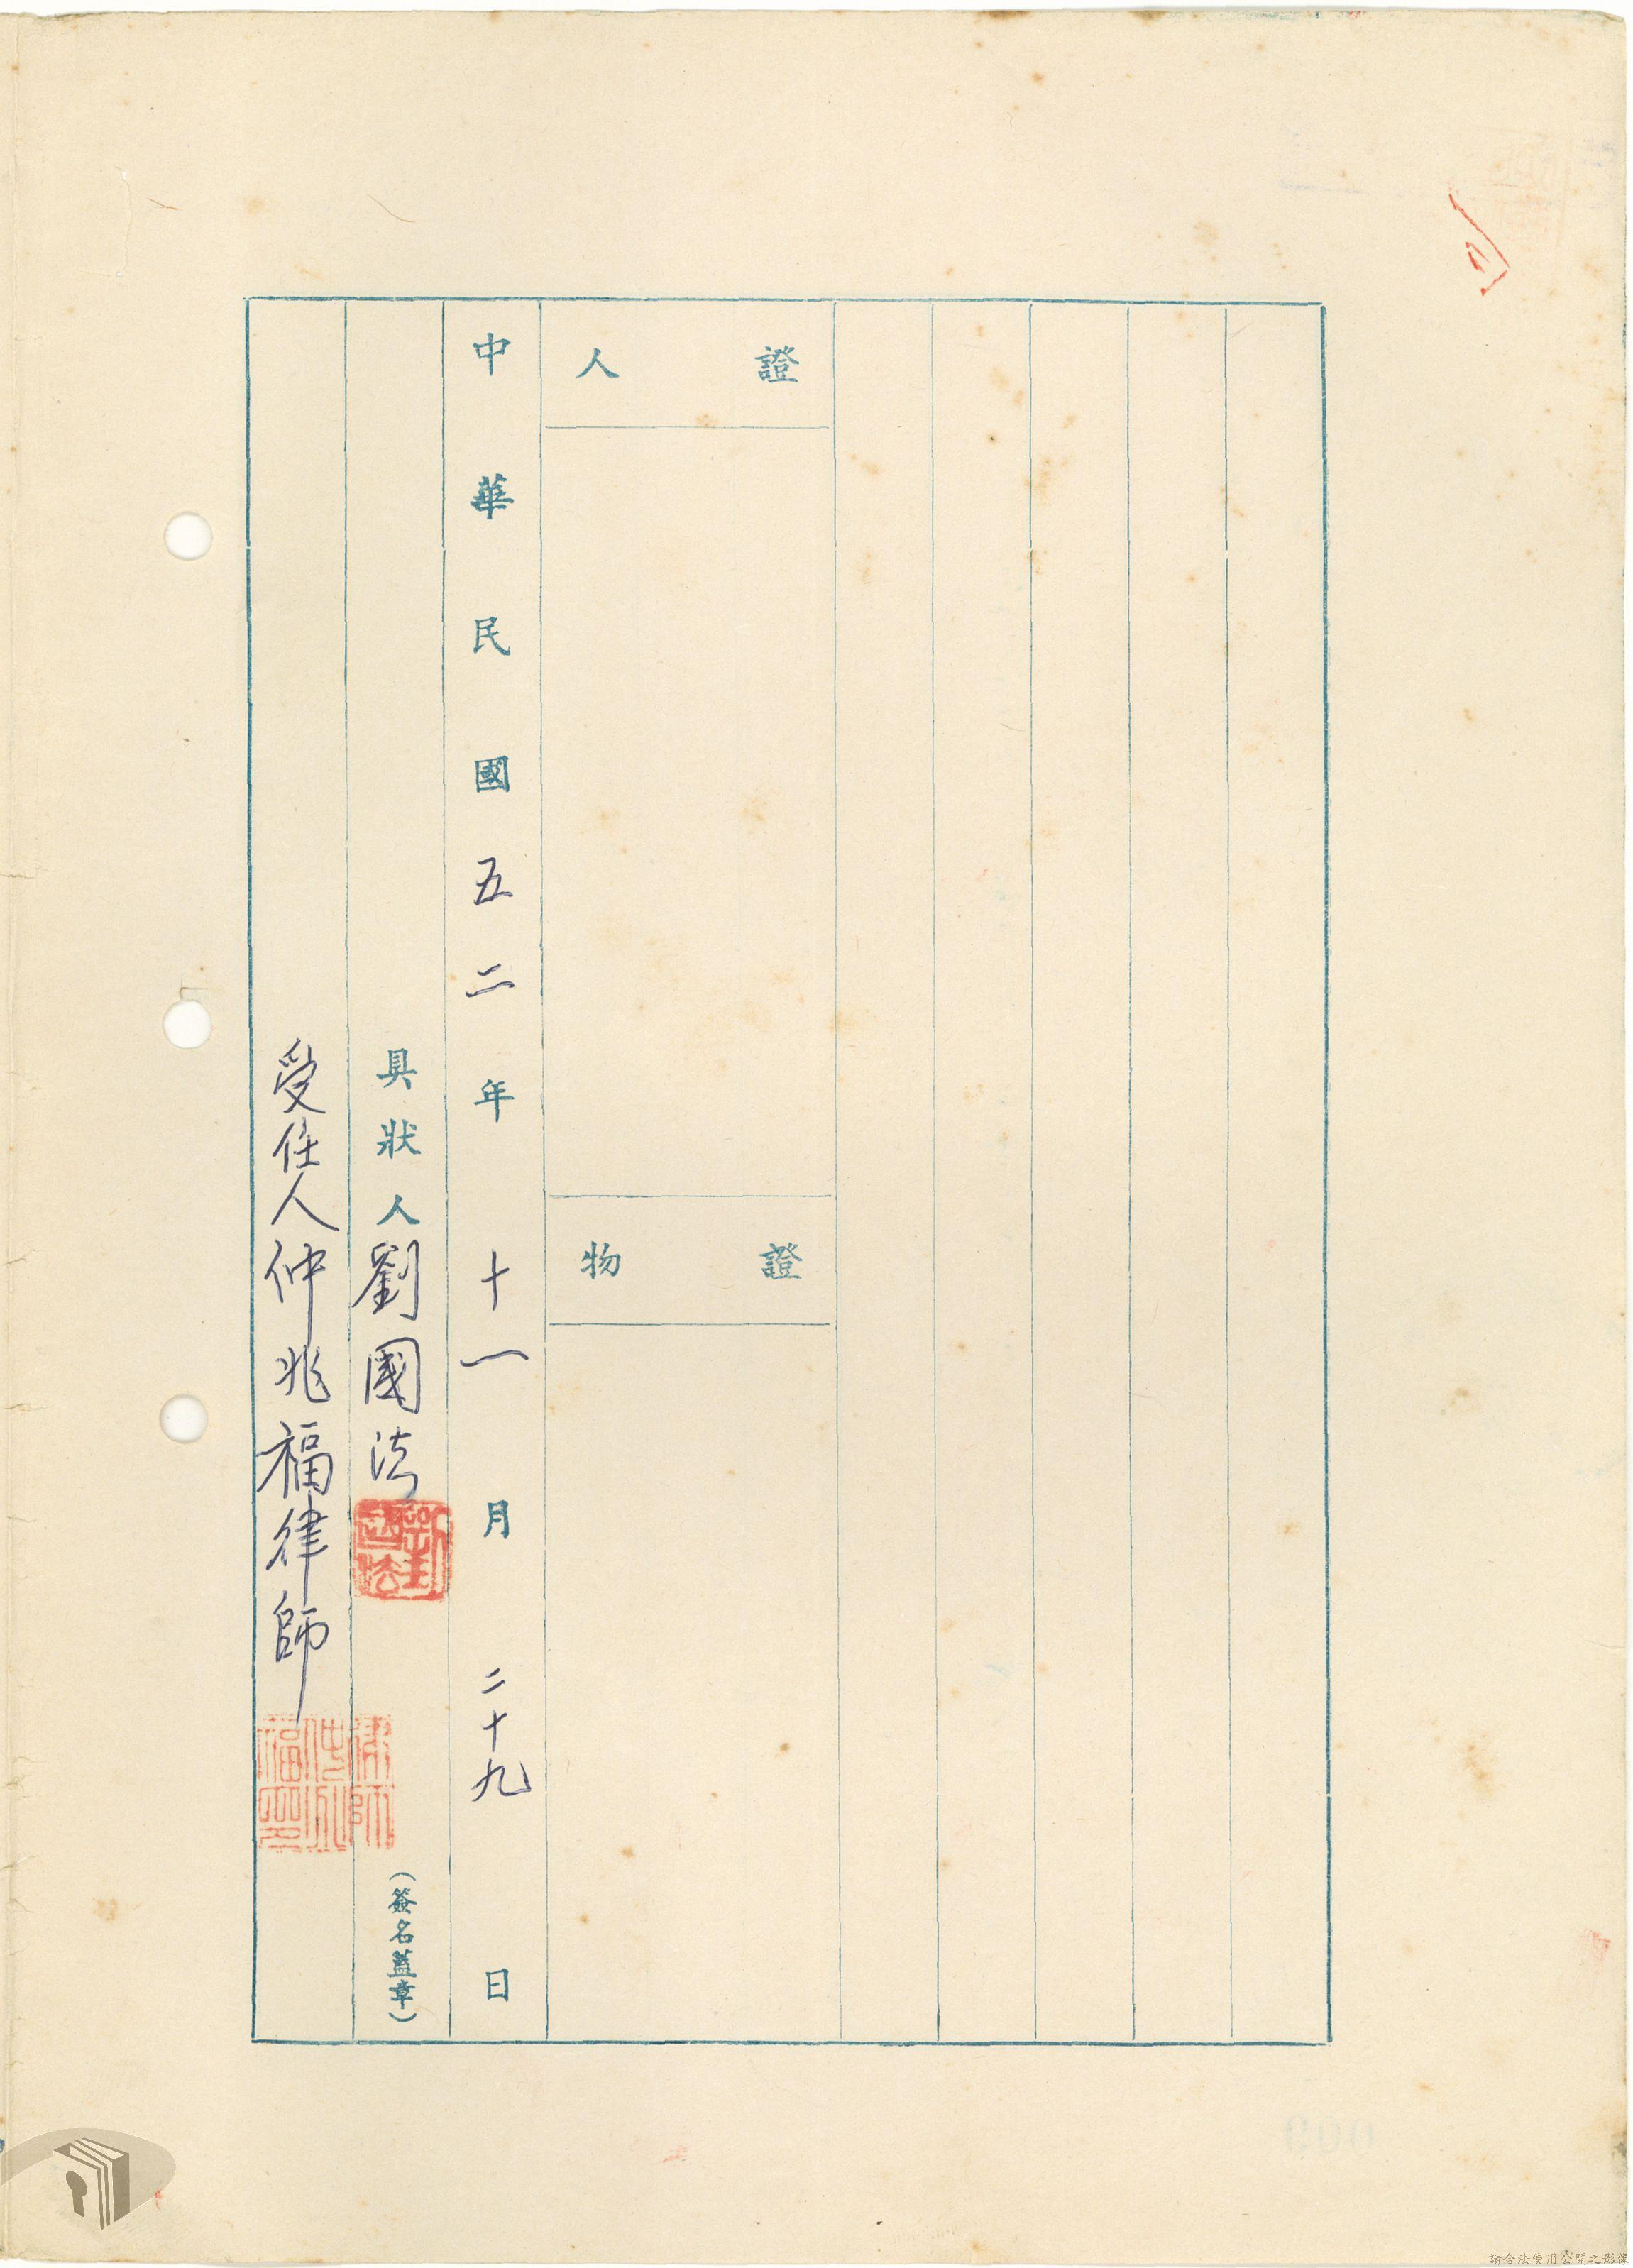 證人
證物
中華民國五二年十一月二十九日
具狀人劉國法
劉國法
(簽名蓋章)
受任人仲兆福律師
律師仲兆福印
請合法使用公開之影像